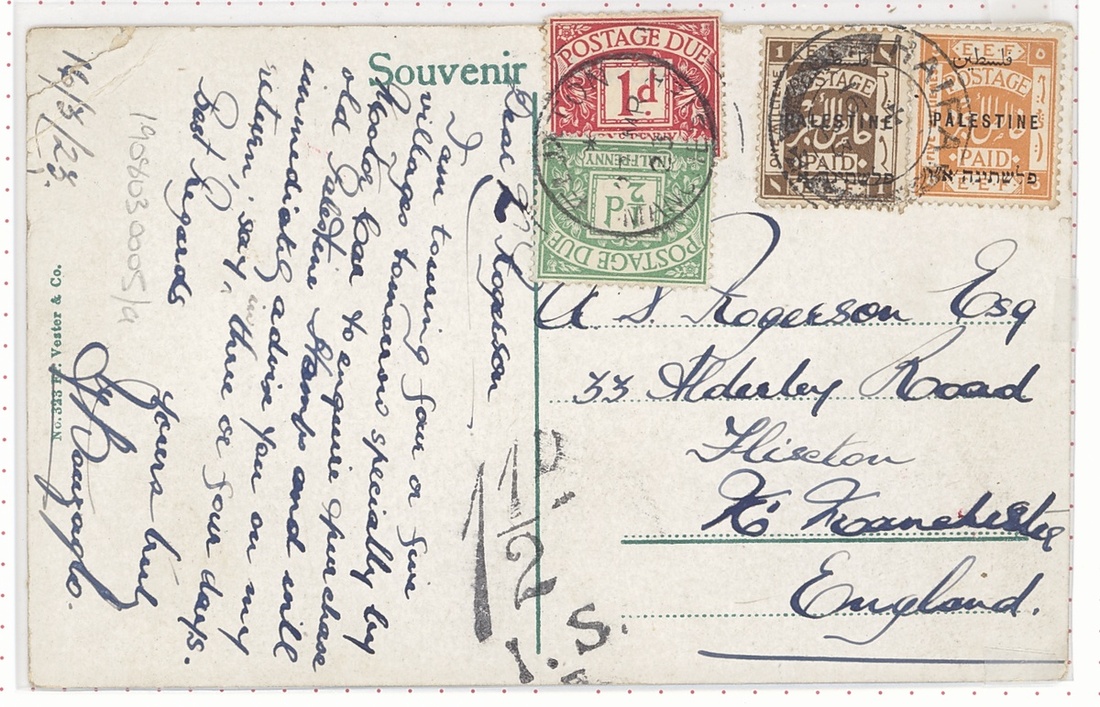 Souvenir
16/3/23.
Dear Mr Rogerson
I am touring four or five
villages tomorrow specially by
Motor Car to enquire & purchase
old Palestine Stamps and will
immediately advise you on my
return, say, in three or four days.
Best Regards
Yours truly
No. 323 Fr. Vester & Co.
19058030005/a
POSTAGE DUE
1d
HALFPENNY
½d
POSTAGE DUE
1
POSTAGE
فلسطين
PALESTINE
PAID
פלשתינה א״י
E.E.F.
٥
فلسطين
POSTAGE
PALESTINE
PAID
פלשתינה א״י
E.E.F.
HAIFA
A S Rogerson Esq
33 Alderley Road
Flixton
Nr Manchester
England.
1½D.
I.S.